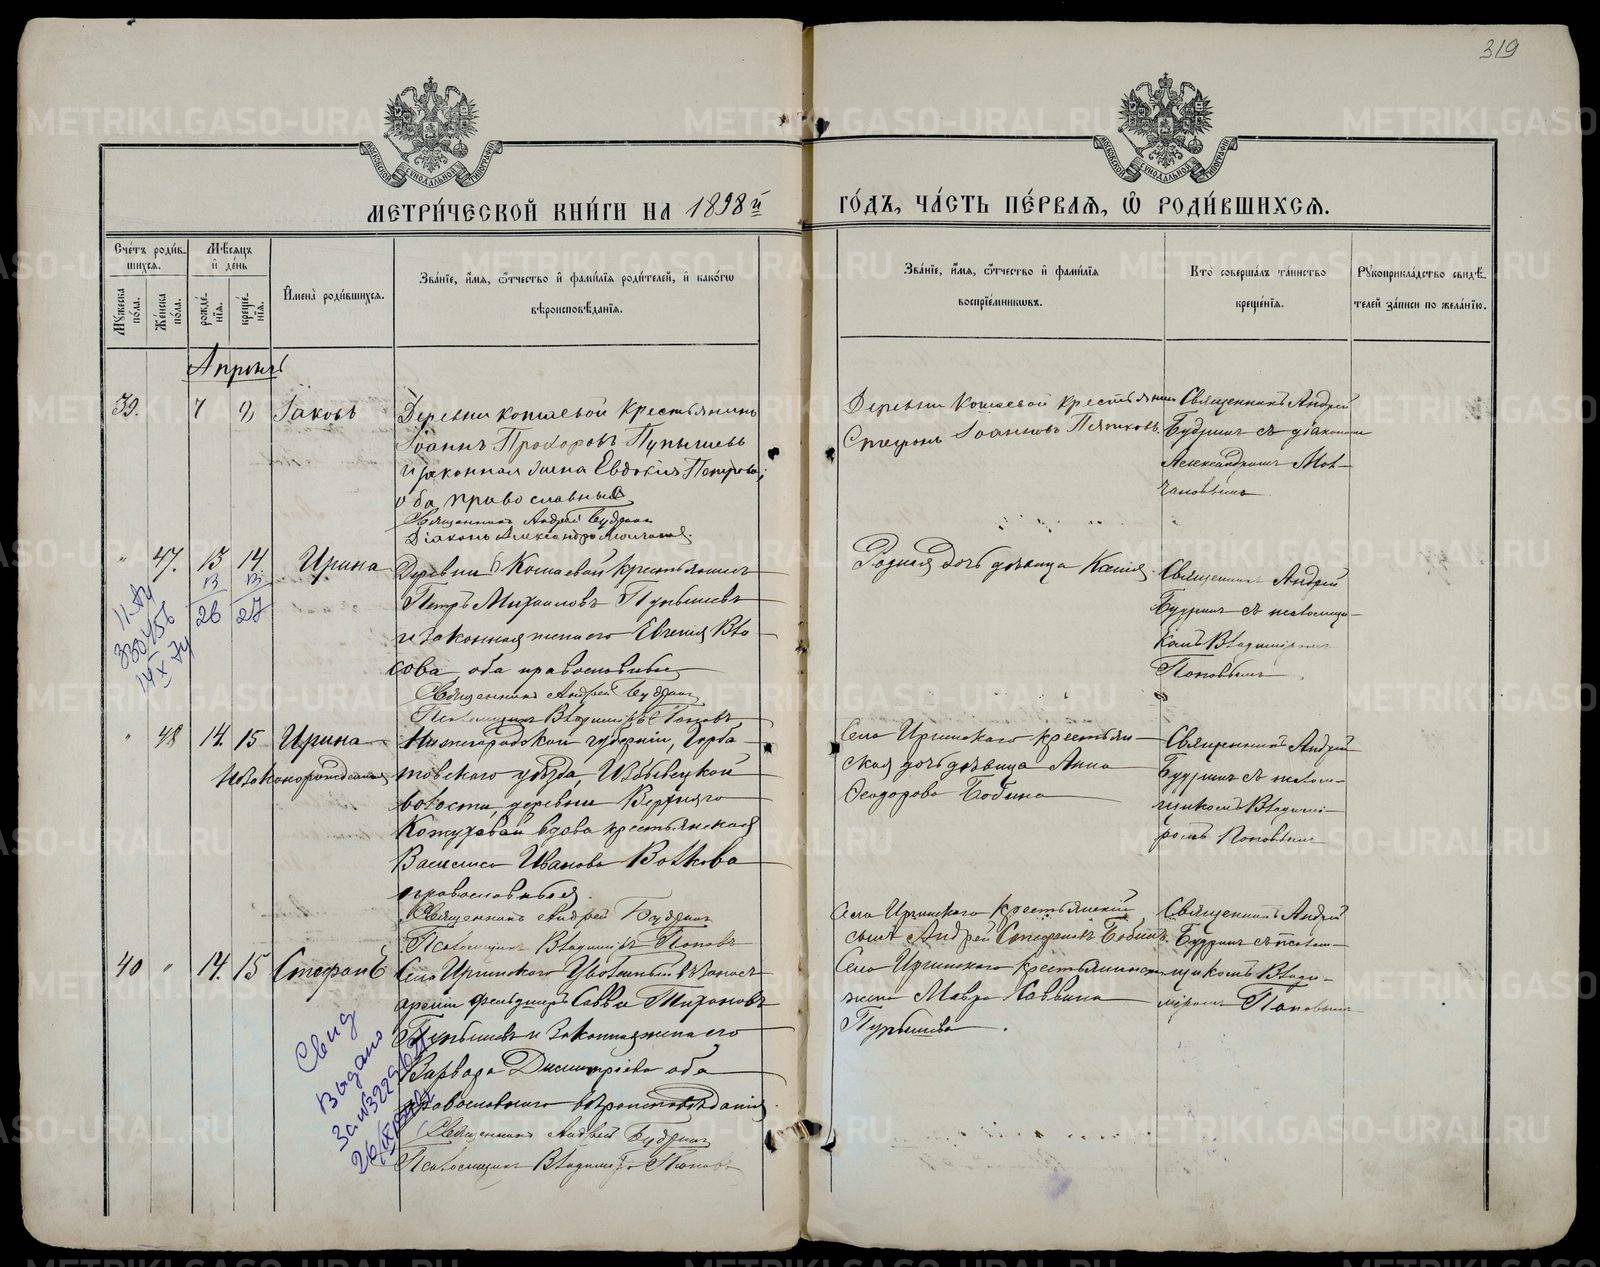 319
МОСКОВСКОЙ СѴНОДАЛЬНОЙ ТИПОГРАФІИ
МОСКОВСКОЙ СѴНОДАЛЬНОЙ ТИПОГРАФІИ
МЕТРИ́ЧЕСКОЙ КНИ́ГИ НА 1898й
ГО́ДЪ, ЧА́СТЬ ПЕ́РВАѦ, Ѡ҆ РОДИ́ВШИХСѦ.
Сче́тъ роди́в-
шихся.
Мѣ́сяцъ
и҆ де́нь
Мꙋ́жеска
по́ла.
Же́нска
по́ла.
рожде́-
нїѧ.
креще́-
нїѧ.
И҆мена̀ роди́вшихсѧ.
Зва́нїе, и҆́мѧ, ѻ҆́тчество и҆ фами́лїѧ роди́телей, и҆ како́гѡ
вѣроисповѣ́данїѧ.
Зва́нїе, и҆́мѧ, ѻ҆́тчество и҆ фами́лїѧ
воспрїе́мникѡвъ.
Кто̀ соверша́лъ та́инство
креще́нїѧ.
Рꙋкоприкла́дство свидѣ́-
телей за́писи по жела́нїю.
Апрѣль
39. 7 8 Іаковъ
Деревни Кошаевой крестьянинъ
Іоаннъ Прохоровъ Пупышевъ
и законная жена Евдокія Петрова,
оба православные
Священникъ Андрей Будринъ
Діаконъ Александръ Молчановъ.
Деревни Кошаевой крестьянинъ
Стефанъ Іоанновъ Пятковъ.
Священникъ Андрей
Будринъ съ діакономъ
Александромъ Мол-
чановымъ
" 47. 13 14. Ирина
IV IV
26 27
Деревни Кошаевой крестьянинъ
Петръ Михаиловъ Пупышевъ
и законная жена его Евгенія Вла-
сова оба православные
Священникъ Андрей Будринъ
Псаломщикъ Владиміръ Поповъ
Родная дочь дѣвица Ксенія.
Священникъ Андрей
Будринъ съ псаломщи-
комъ Владиміромъ
Поповымъ
" 48 14. 15 Ирина
Незаконорожденная
Нижегородской губерніи, Горба-
товскаго уѣзда, Избылецкой
волости, деревни Верхняго
Кожухова вдова крестьянская
Василиса Иванова Волкова
православная.
Священникъ Андрей Будринъ
Псаломщикъ Владиміръ Поповъ
Села Иргинскаго крестьян-
ская дочь дѣвица Анна
Ѳеодорова Бобина
Священникъ Андрей
Будринъ съ псалом-
щикомъ Владимі-
ромъ Поповымъ
40 " 14. 15 Стефанъ
Села Иргинскаго Уволенный въ запасъ
арміи фельдшеръ Савва Тихоновъ
Пупышевъ и Законная жена его
Варвара Димитріева оба
православнаго вѣроисповѣданія
Священникъ Андрей Будринъ
Псаломщикъ Владиміръ Поповъ
Села Иргинскаго крестьянскій
сынъ Андрей Стефановъ Бобинъ.
Села Иргинскаго крестьянская
жена Мавра Саввина
Пупышева.
Священникъ Андрей
Будринъ съ псалом-
щикомъ Влади-
міромъ Поповымъ
Свид
выдано
METRIKI.GASO-URAL.RU